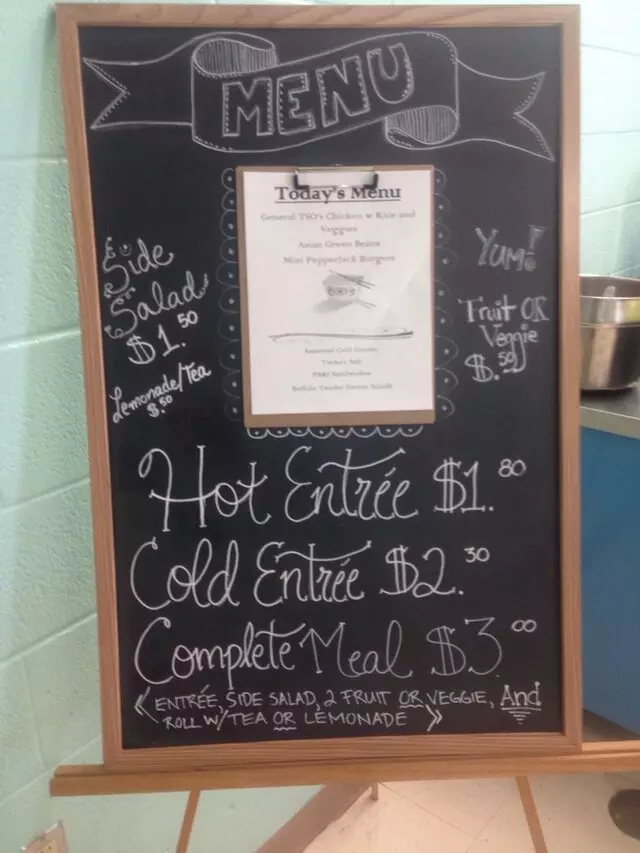 MENU
Today's Menu
General TSO's Chicken w Rice and
Veggies
Asian Green Beans
Mini Pepperjack Burgers
Side
Salad
$1.50
Lemonade/Tea
$.50
Yum!
Fruit OR
Veggie
$.50
Assorted Cold Entree
Turkey Sub
PB&J Sandwiches
Buffalo Tender Street Salads
Hot Entrée $1.80
Cold Entrée $2.30
Complete Meal $3.00
ENTRÉE, SIDE SALAD, 2 FRUIT OR VEGGIE, And
ROLL W/TEA OR LEMONADE